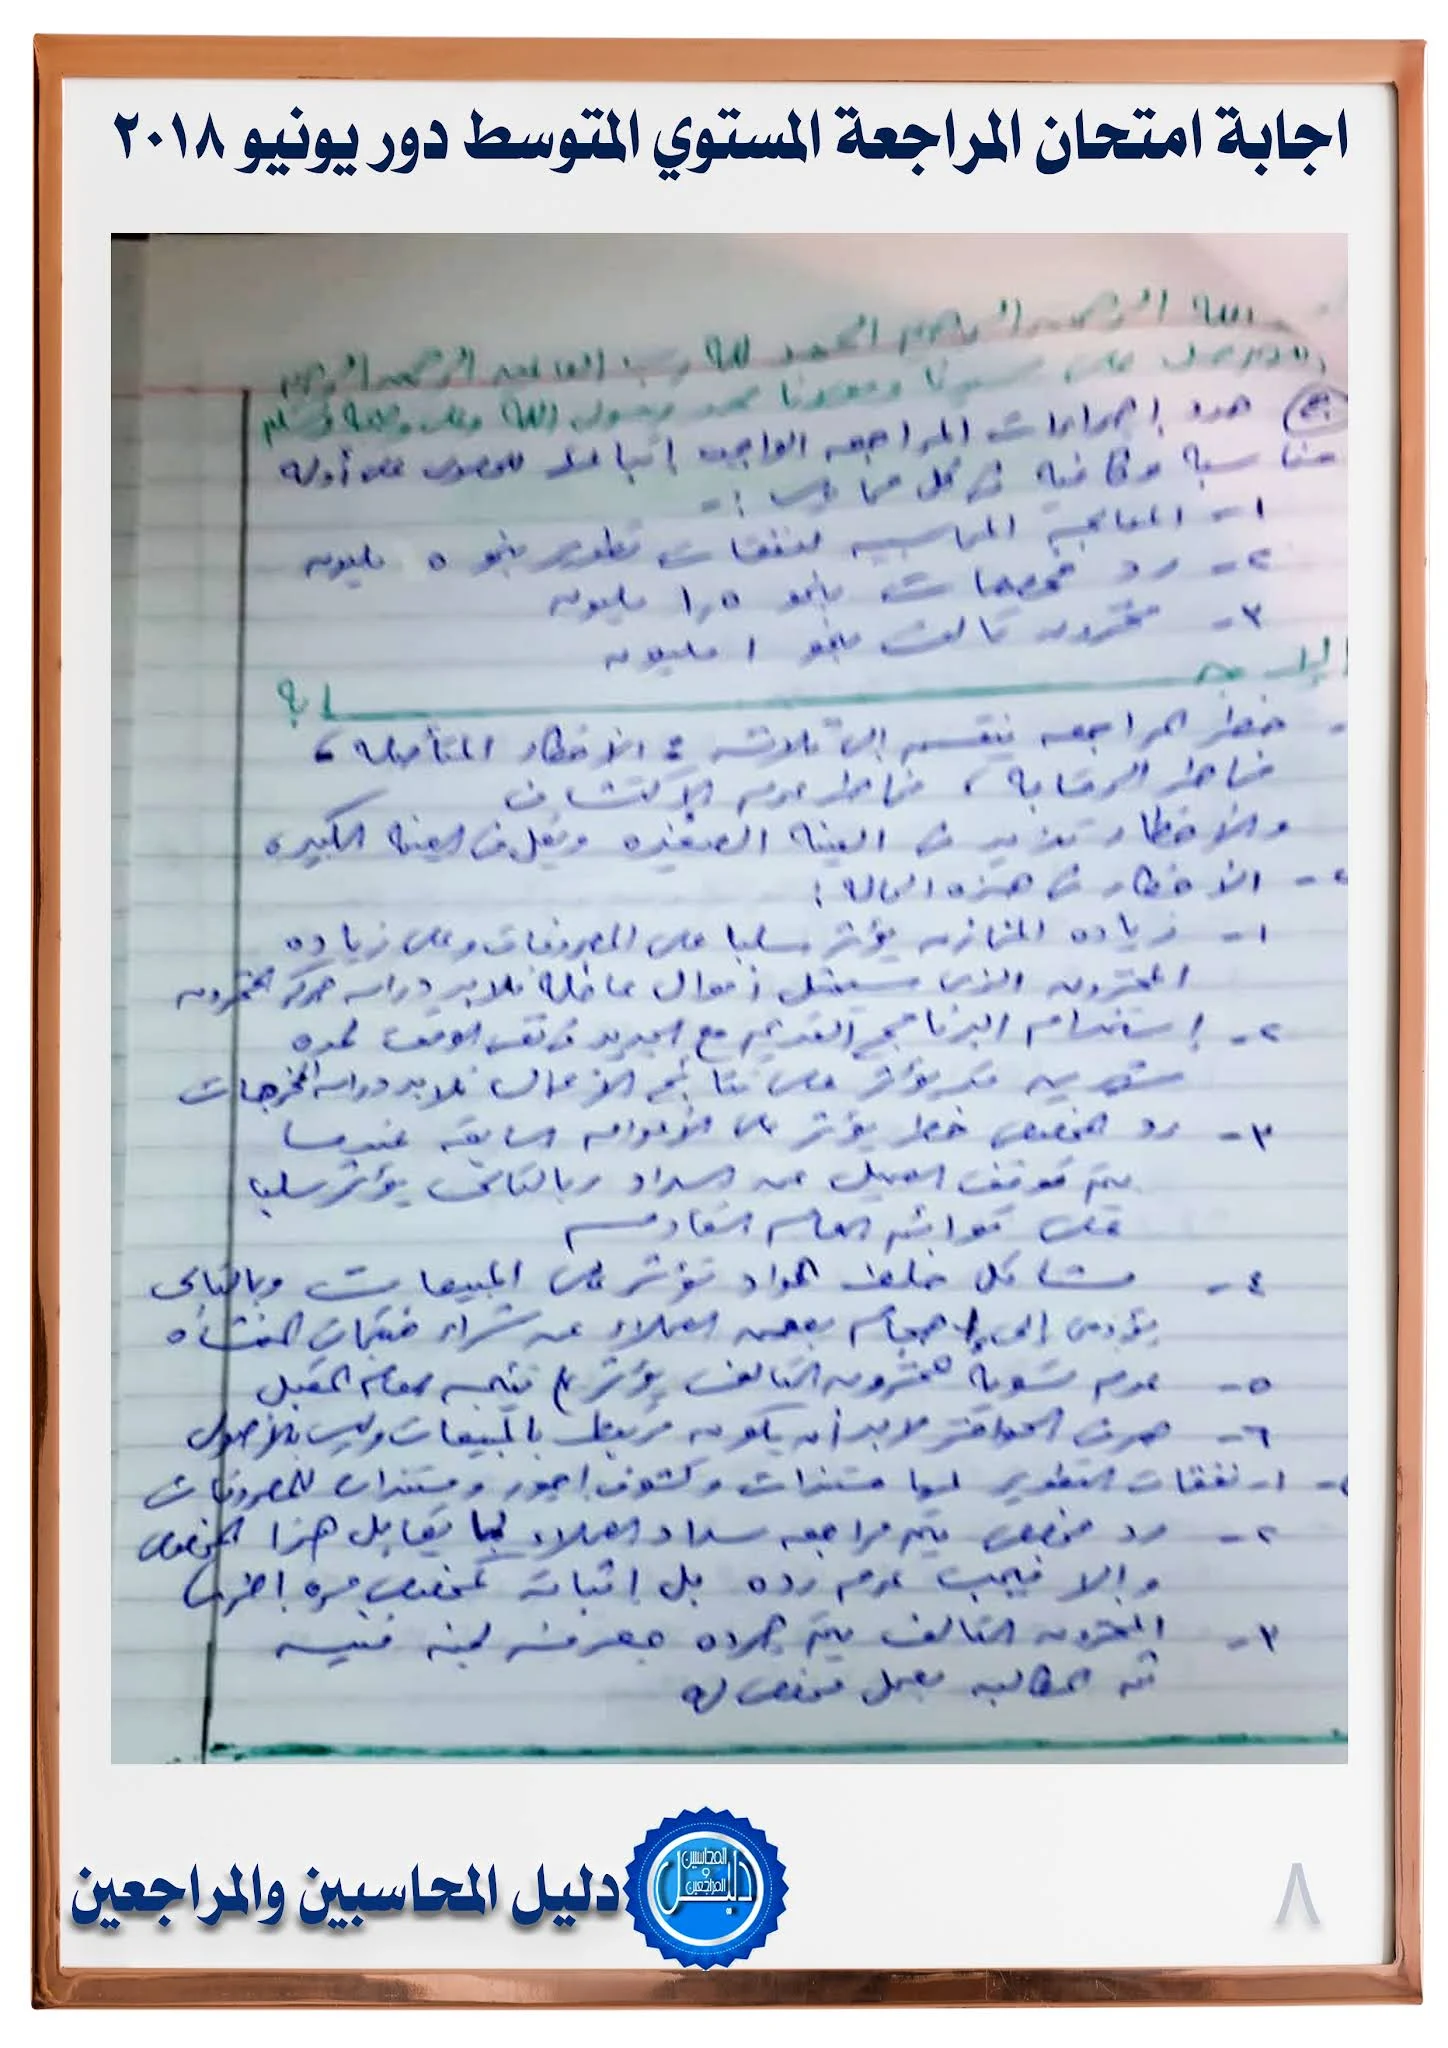 اجابة امتحان المراجعة المستوي المتوسط دور يونيو ٢٠١٨
الله الرحمن الرحيم الحمد لله رب العالمين الرحمن الرحيم
على سيدنا محمد رسول الله
حدد إجراءات المراجعه الواجب إتباعها للحصول على أدله
مناسبة وكافية فى كل مما يلى :-
١- المعالجة المحاسبيه لنفقات تطوير بنحو ٥ مليون
٢- رد مخصصات بنحو ١,٥ مليون
٣- مخزون تالف بنحو ١ مليون
خطر المراجعه ينقسم إلى ثلاثه : الأخطار المتأصله ،
مخاطر الرقابة ، مخاطر عدم الإكتشاف
والأخطار تزيد فى العينه الصغيره وتقل فى العينه الكبيره
٢- الأخطار فى هذه الحاله :
١- زياده المخازن يؤثر سلبا على المصروفات وعلى زياده
المخزون الذى سيمثل أموال عاطله فلابد دراسه حركه المخزون
٢- إستخدام البرنامج القديم مع الجديد فى نفس الوقت لمده
شهرين قد يؤثر على نتائج الأعمال فلابد دراسه المخرجات
٣- رد المخصص خطر يؤثر على الأعوام السابقه عندما
يتم توقف العميل عن السداد وبالتالى يؤثر سلبا
على قوائم العام القادم
٤- مشاكل خلط المواد تؤثر على المبيعات وبالتالى
يؤدى إلى إحجام بعض العملاء عن شراء منتجات المنشأه
٥- عدم تسوية المخزون التالف يؤثر على نتيجه العام المقبل
٦- صرف الحوافز لابد أن يكون مرتبط بالمبيعات وليس بالأصول
١- نفقات التطوير لها مستندات وكشوف أجور ومستندات للمصروفات
٢- رد مخصص يتم مراجعه سداد العملاء لما يقابل هذا المخصص
وإلا فيجب عدم رده بل إثبات مخصص مره أخرى
٣- المخزون التالف يتم جرده بمعرفه لجنه فنيه
ثم المطالبه بعمل مخصص له
دليل المحاسبين والمراجعين
دليل المحاسبين و المراجعين
٨